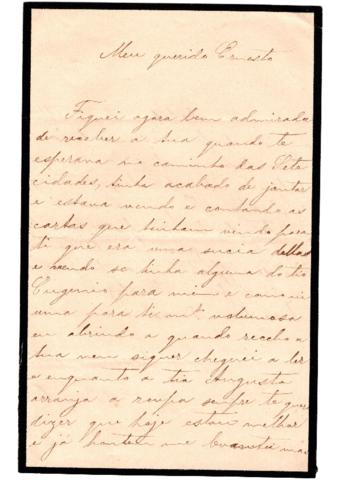 Meu querido Ernesto
Fiquei agora bem admirada
de receber a tua quando te
esperava no caminho das Sete
cidades, tinha acabado de jantar
e estava vendo e contando as
cartas que tinham vindo para
ti que era uma sucia dellas
e vendo se tinha alguma do tio
Eugenio para mim e comecei
uma para ti mt.º volumosa
eu abrindo a quando recebo a
tua nem siquer cheguei a ler
e enquanto a tia Augusta
arranja a roupa sempre te quero
dizer que hoje estou melhor
e já hontem me levantei